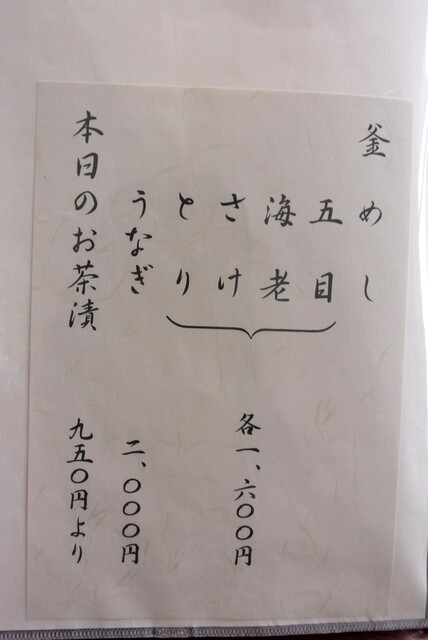 釜めし
五目
海老
さけ
とり
各一、六〇〇円
うなぎ
二、〇〇〇円
本日のお茶漬
九五〇円より